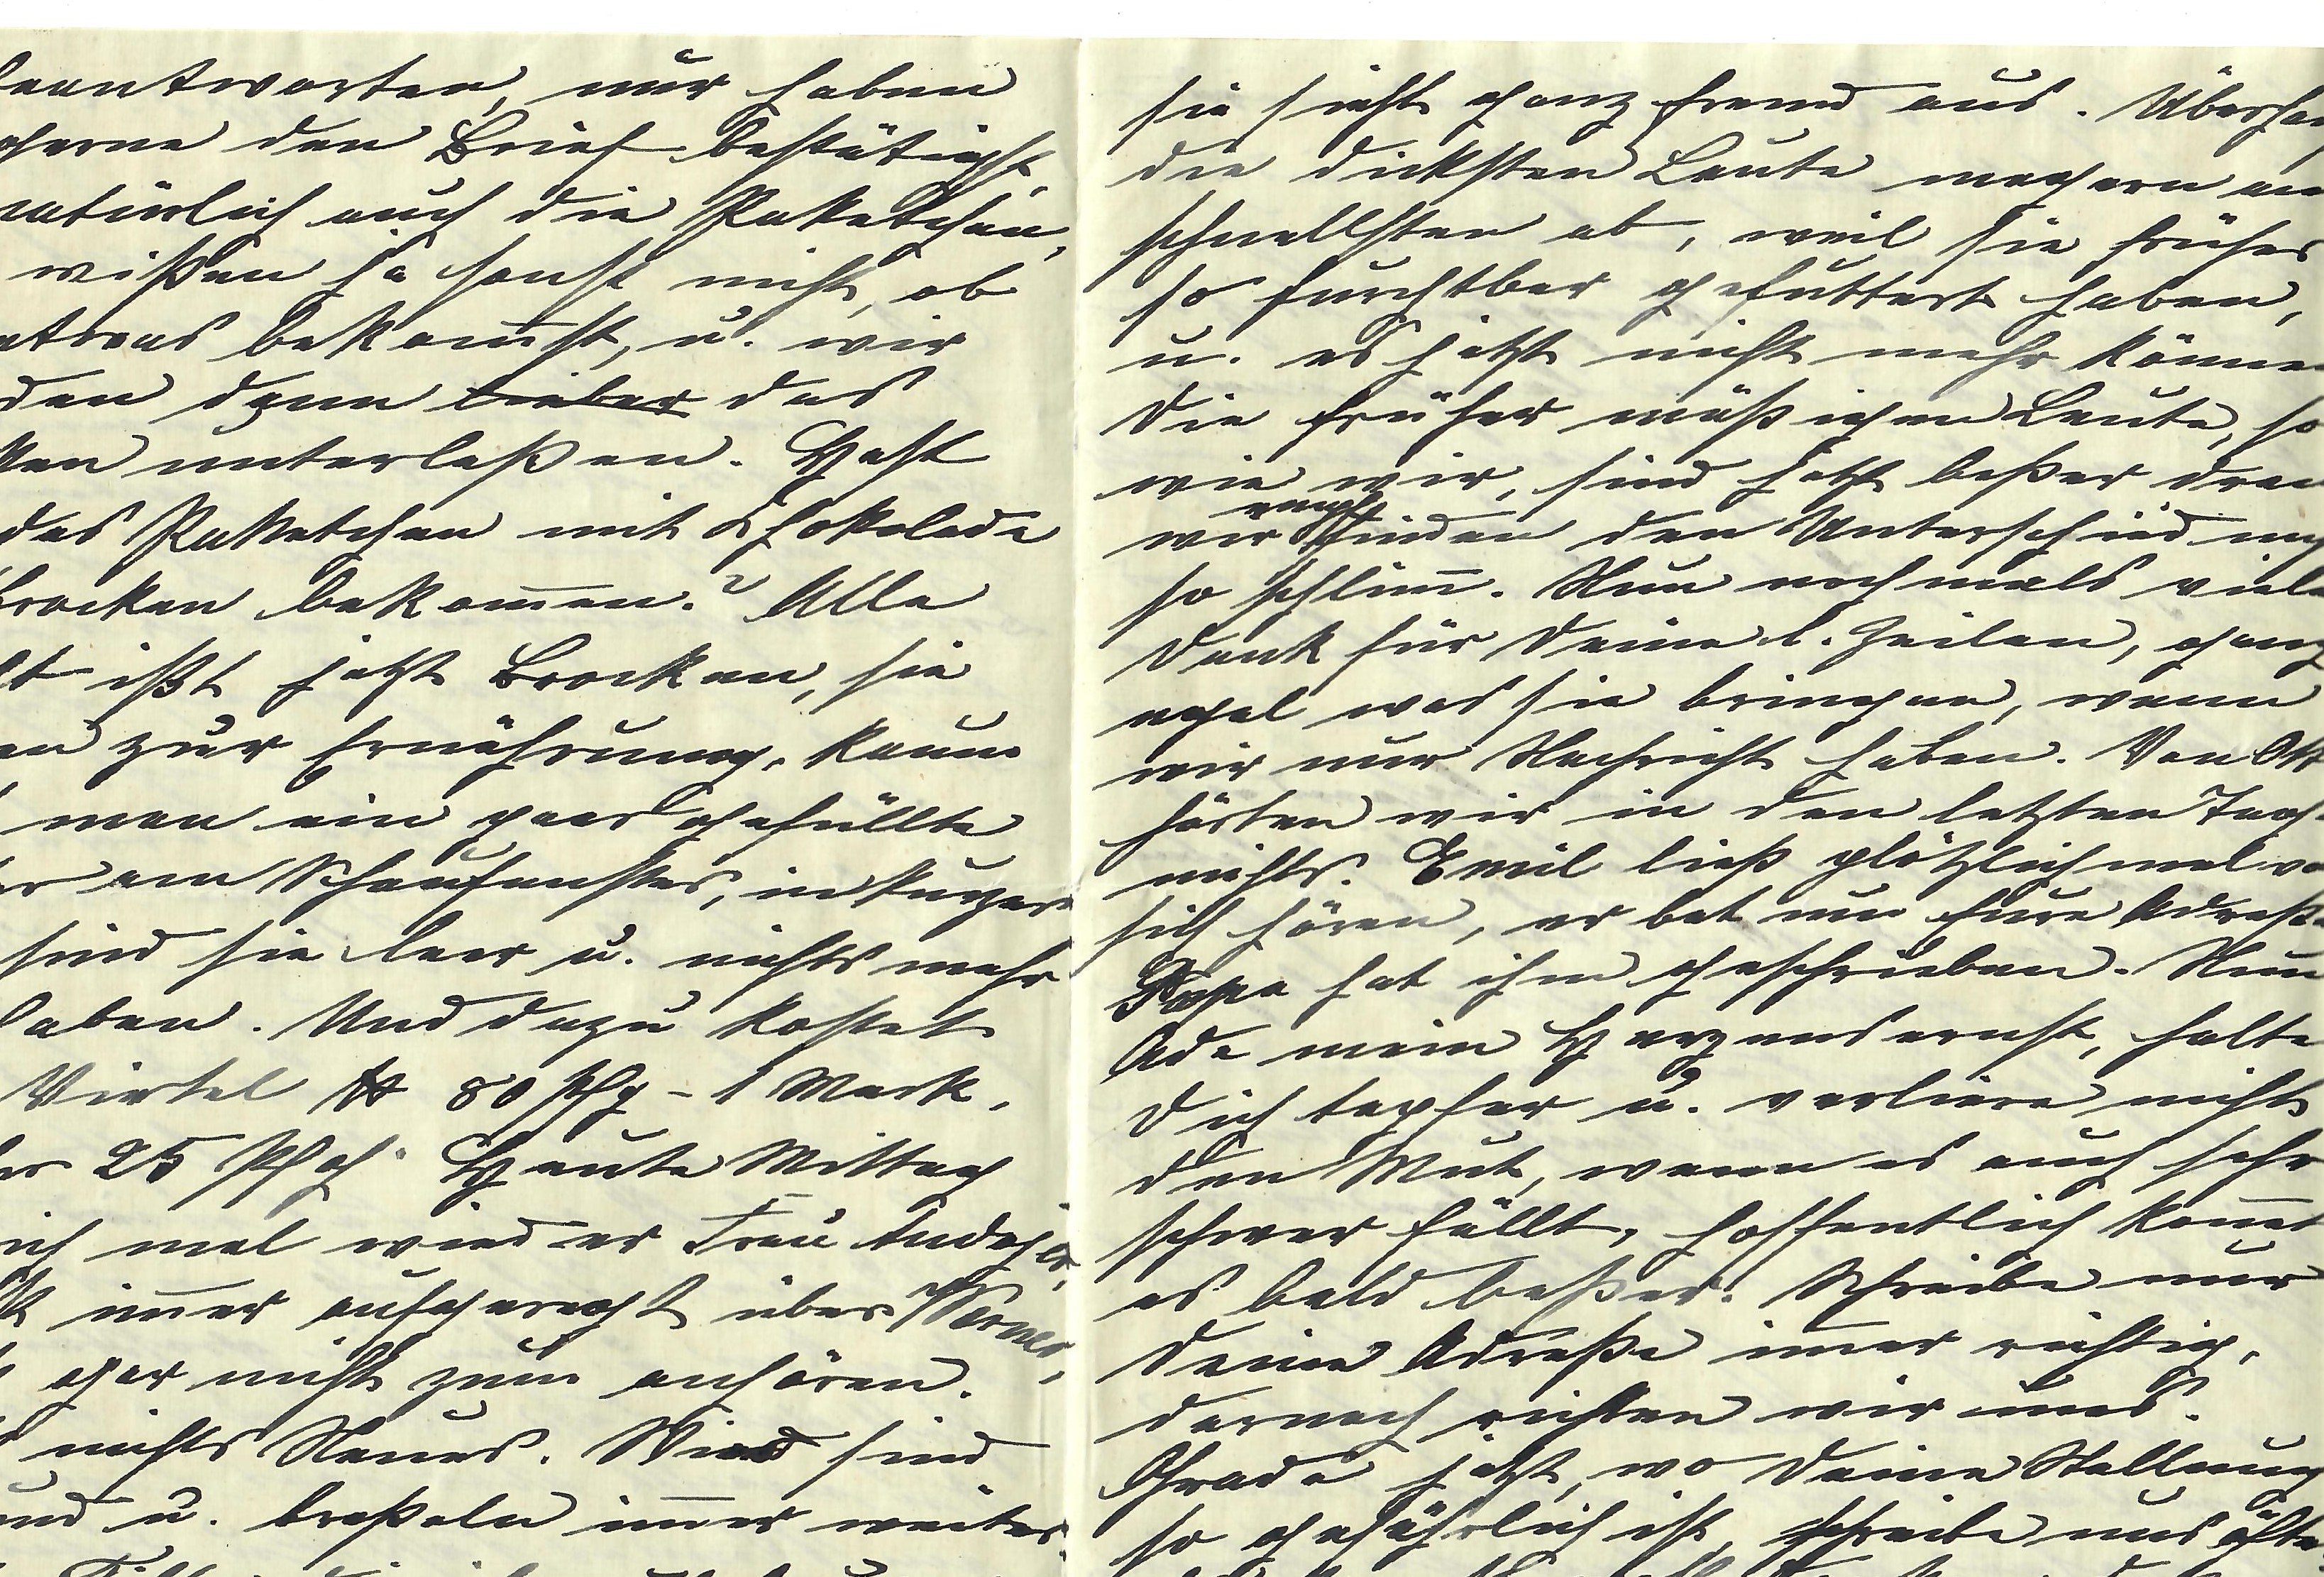 beantworten, nur haben
gerne den Brief bestätigt,
natürlich auch die Paketchen,
wißen ja sonst nicht, ob
etwas bekom̅st, u. wir
den dann lieber das
ken unterlaßen. Hast
das Paketchen mit Schokolade
brocken bekom̅en? Alle
lt ißt jetzt Brocken, sie
en zur Ernährung. Kaum
man ein paar gefüllte
er am Schaufenster, in kurzer
sind sie leer u. nichts mehr
haben. Und dazu kostet
Viertel ℔ 80 Pfg – 1 Mark,
er 25 Pfg. Heute Mittag
ich mal wieder Frau
t im̅er aufgeregt über Werner,
gar nicht zum anhören.
nichts Neues. Wir sind
und u. braßeln im̅er weiter.
sie sieht ganz fremd aus. Überhau
die dicksten Leute magern am
schnellsten ab, weil sie früher
so furchtbar gefuttert haben,
u. es jetzt nicht mehr können
Die früher mäßigen Leute, so
wie wir, sind jetzt beßer dran
wir empfinden den Unterschied nich
so schlim̅. Nun nochmals viele
Dank für Deine l. Zeilen, ganz
egal was sie bringen, wenn
wir nur Nachricht haben. Von Ott
hörten wir in den letzten Tage
nichts. Emil ließ plötzlich mal vo
sich hören, er bat um Eure Adreße
Papa hat ihm geschrieben. Nun
Ade mein Herzensernst, halte
Dich tapfer u. verliere nicht
den Mut, wenn es auch sehr
schwer fällt, hoffentlich kom̅t
es bald beßer. Schreibe nur
Deine Adreße im̅er richtig,
darnach richten wir uns.
Grade jetzt, wo Deine Stellung
so gefährlich ist, schreibe uns öfte